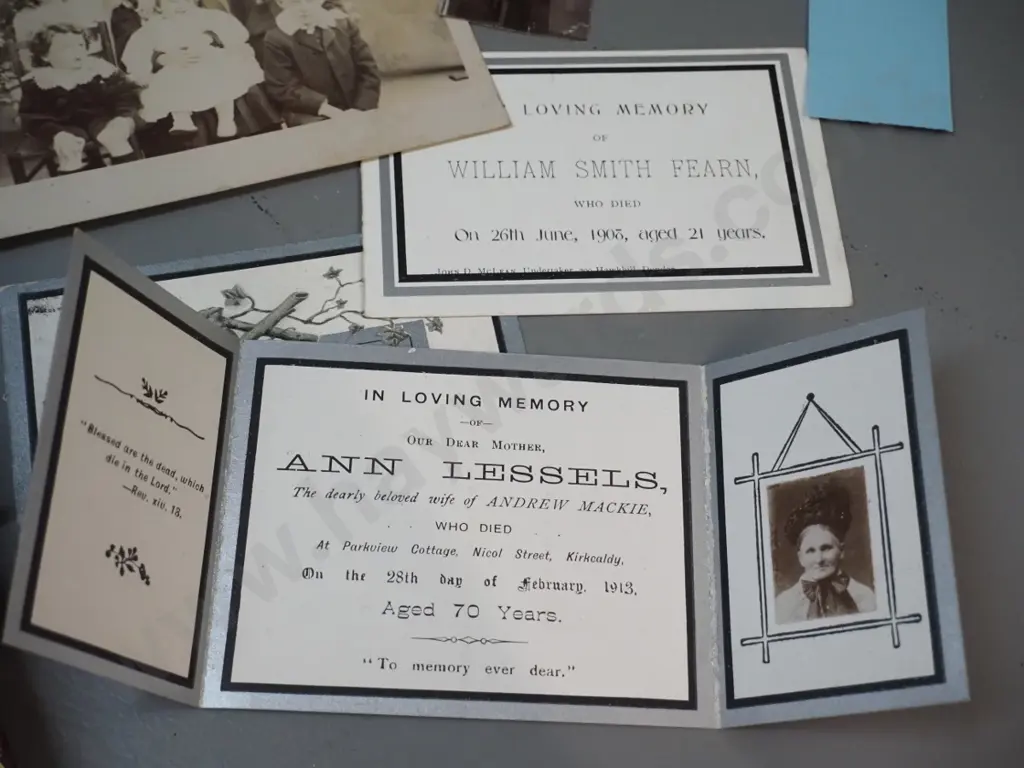 LOVING MEMORY
OF
WILLIAM SMITH FEARN,
WHO DIED
On 26th June, 1903, aged 21 years.
John D. McLean, Undertaker,
"Blessed are the dead, which
die in the Lord."
—Rev. xiv. 13.
IN LOVING MEMORY
—OF—
Our Dear Mother,
ANN LESSELS,
The dearly beloved wife of ANDREW MACKIE,
WHO DIED
At Parkview Cottage, Nicol Street, Kirkcaldy,
On the 28th day of February, 1913,
Aged 70 Years.
"To memory ever dear."